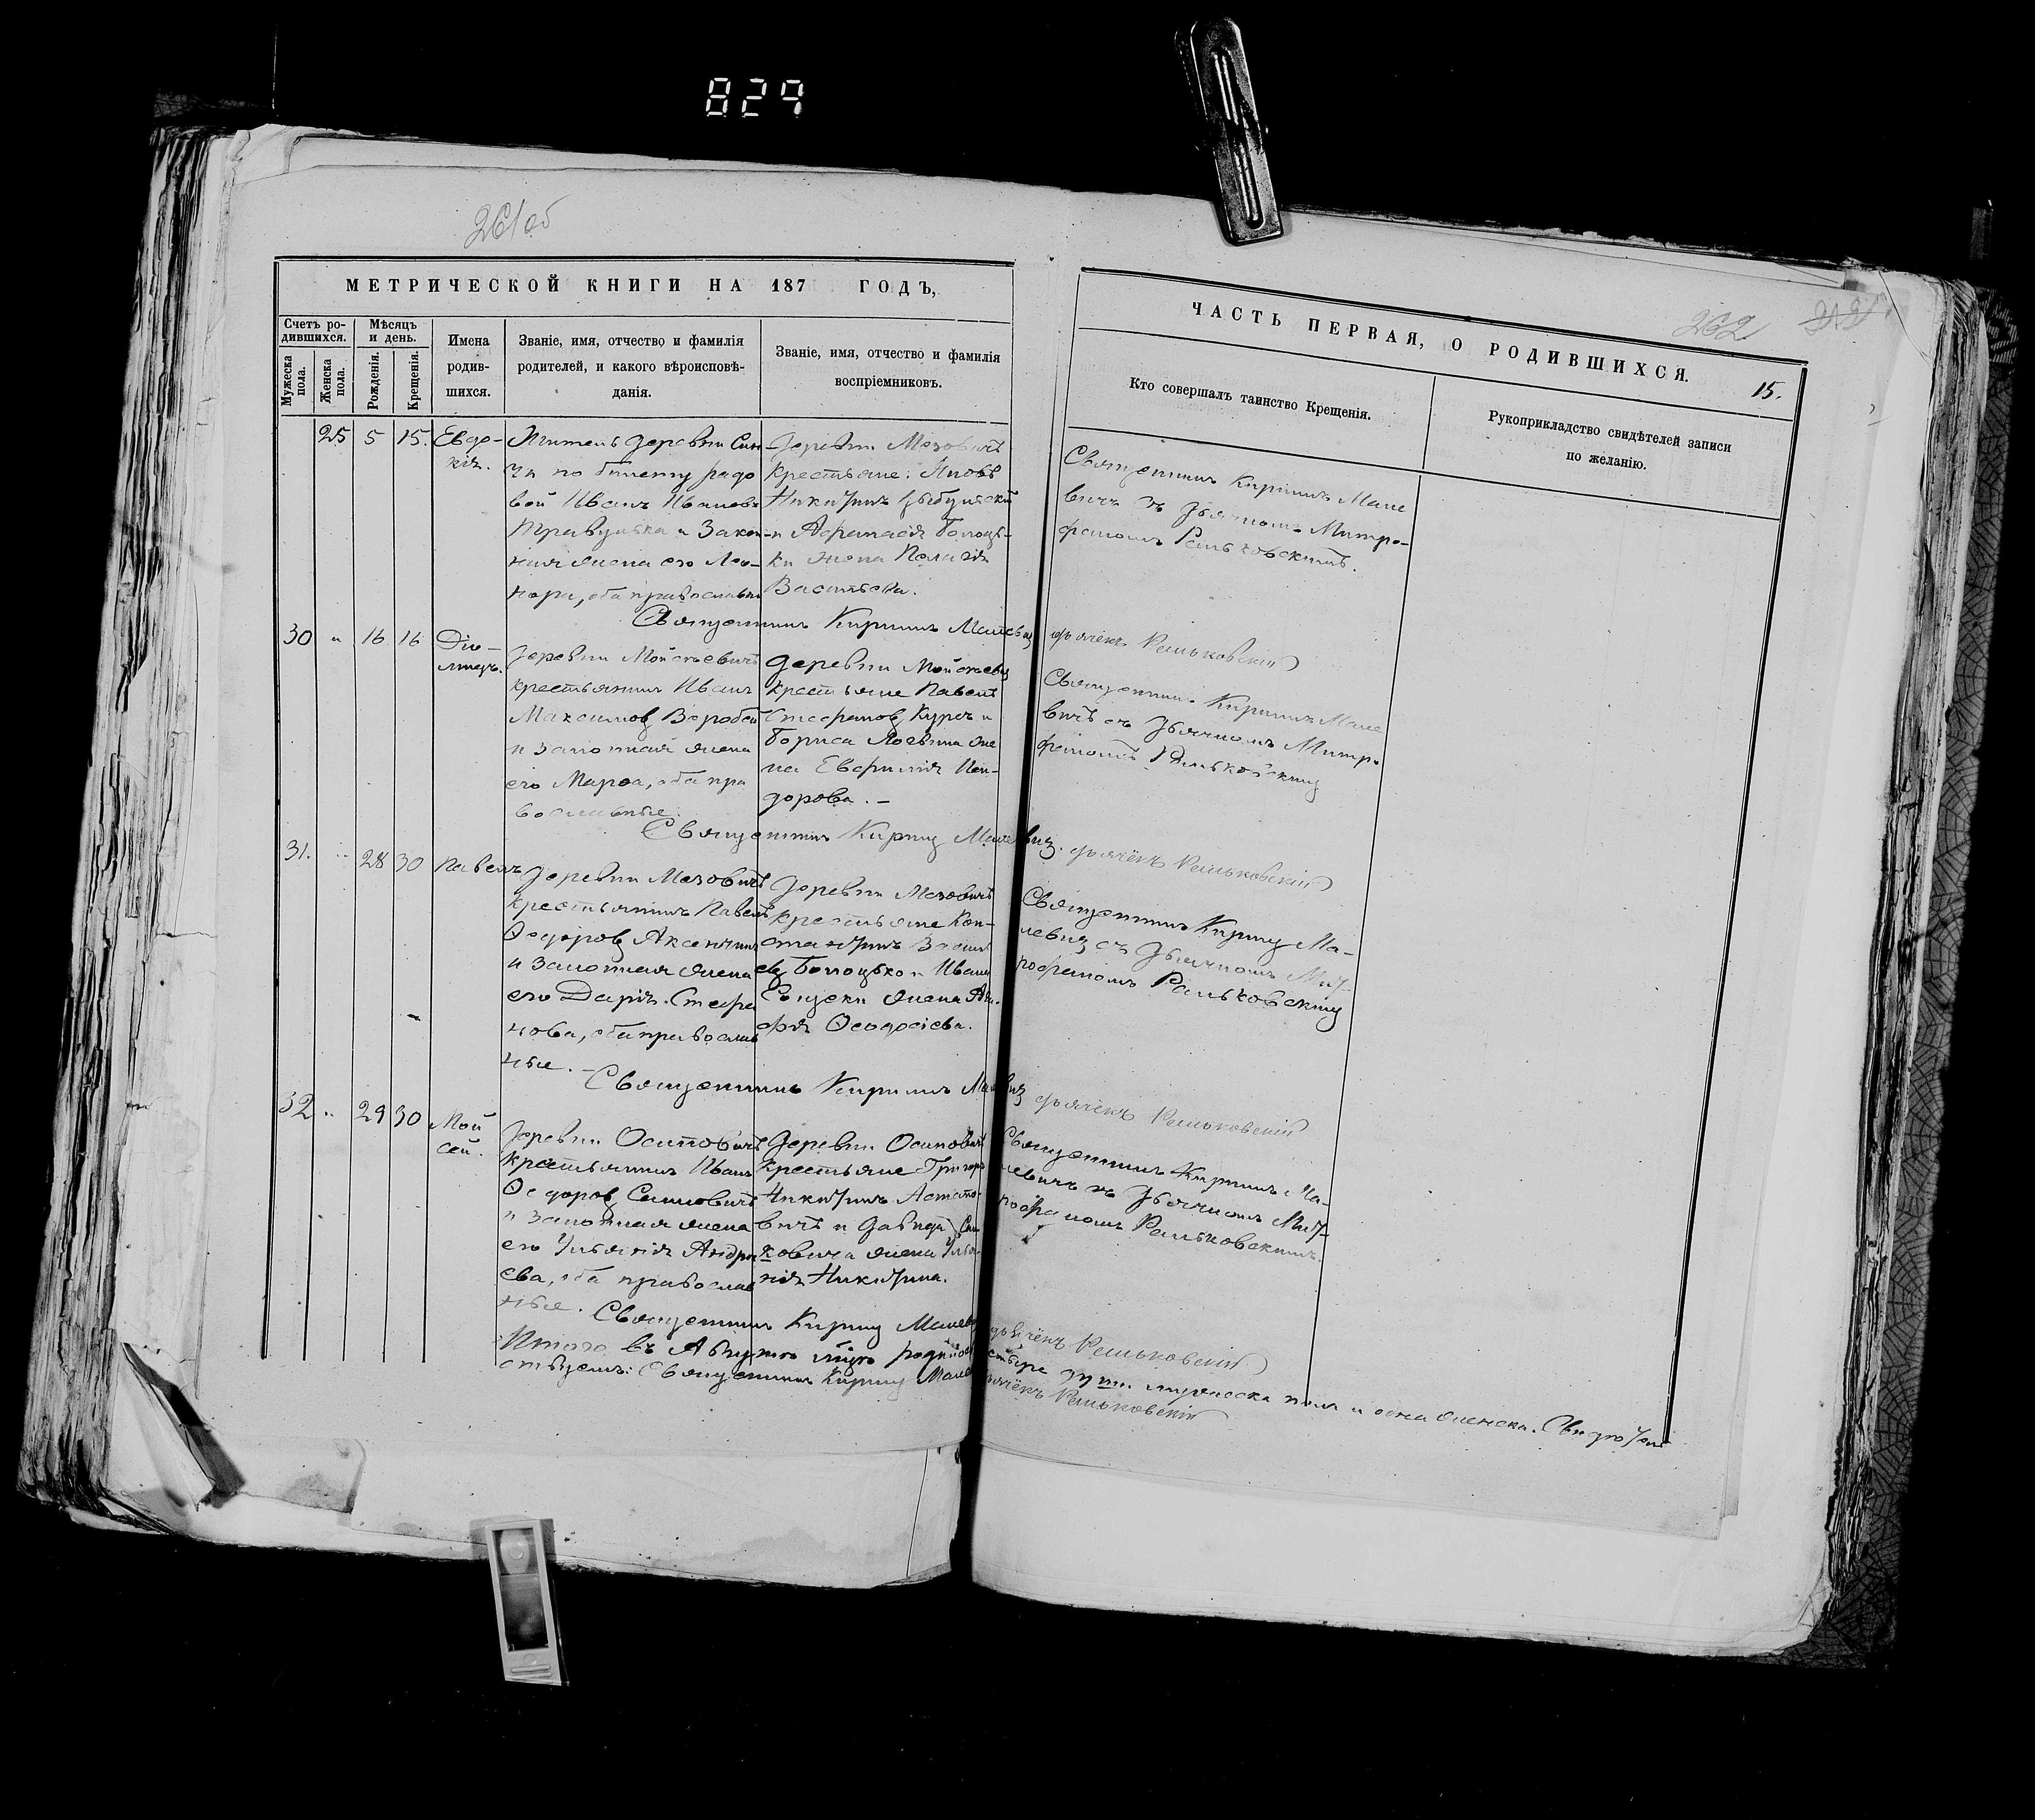 829
261об
МЕТРИЧЕСКОЙ КНИГИ НА 187 ГОДЪ,
Счетъ ро-
дившихся.
Мужеска пола.
Женска пола.
Мѣсяцъ
и день.
Рожденія.
Крещенія.
Имена
родив-
шихся.
Званіе, имя, отчество и фамилія
родителей, и какого вѣроисповѣ-
данія.
Званіе, имя, отчество и фамилія
воспріемниковъ.
25 5 15. Евдо-
кія.
Житель деревни
по билету рядо
вой Иванъ Иванов
и Закон-
ная жена его Лео-
нора, оба православн
Деревни Мезовичъ
крестьяне: Яковъ
Никитинъ
и Афанасія Болоцъ-
ки жена Пелагія
Васильева.
Священникъ Кириллъ Малевичъ
дьячёкъ Рельковскій
30 " 16 16 Діо-
мидъ.
Деревни Мойсѣевичъ
крестьянинъ Иванъ
Максимовъ Воробей
и законная жена
его Марѳа, оба пра
вославные.
Деревни Мойсѣевичъ
крестьяне Павелъ
Стефановъ Курсъ и
Бориса Логвина же
на Евфимія Иси-
дорова. —
Священникъ Кириллъ Малевичъ. дьячёкъ Рельковскій
31. " 28 30 Павелъ
Деревни Мезовичъ
крестьянинъ Павелъ
Ѳедоровъ
и законная жена
его Дарія Стефа
нова, оба православ
ные. —
Деревни Мезовичъ
крестьяне Кон-
стантинъ Василь
евъ Болоцько и Ивана
жена Ага-
фія Ѳеодосіева.
Священникъ Кириллъ Малевичъ дьячёкъ Рельковскій
32 " 29 30 Мой
сей.
Деревни Осиповичъ
крестьянинъ Иванъ
Ѳедоровъ
и законная жена
его Ульянія Андре
ева, оба православ
ные.
Деревни Осиповичъ
крестьяне Григорій
Никитинъ
вичъ и Давида
ковича жена Улья-
нія Никитина.
Священникъ Кириллъ Малевичъ дьячёкъ Рельковскій
Итого въ Августѣ мѣсяцѣ родилось
мужеска пола и одна женска.
Священникъ Кириллъ Малевичъ дьячёкъ Рельковскій
ЧАСТЬ ПЕРВАЯ, О РОДИВШИХСЯ.
262
15.
Кто совершалъ таинство Крещенія.
Рукоприкладство свидѣтелей записи
по желанію.
Священникъ Кириллъ Мале
вичъ съ дьячкомъ Митро-
фаномъ Рельковскимъ.
Священникъ Кириллъ Мале
вичъ съ дьячкомъ Митро
фаномъ Рельковскимъ
Священникъ Кириллъ Ма-
левичъ съ дьячкомъ Мит-
рофаномъ Рельковскимъ
Священникъ Кириллъ Ма-
левичъ съ дьячкомъ Мит-
рофаномъ Рельковскимъ.